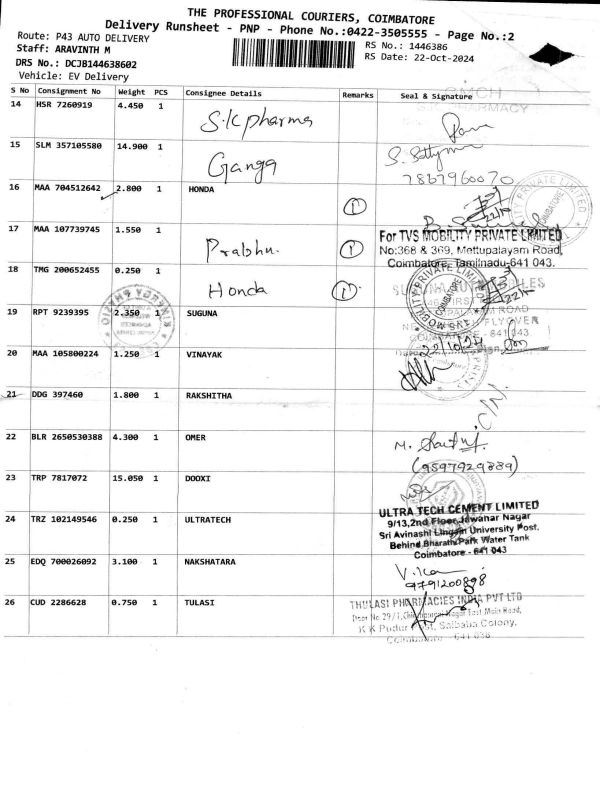 THE PROFESSIONAL COURIERS, COIMBATORE
Delivery Runsheet - PNP - Phone No.:0422-3505555 - Page No.:2
Route: P43 AUTO DELIVERY
RS No.: 1446386
Staff: ARAVINTH M
RS Date: 22-Oct-2024
DRS No.: DCJB144638602
Vehicle: EV Delivery
S No Consignment No Weight PCS Consignee Details Remarks Seal & Signature
14 HSR 7260919 4.450 1 S.K pharma
PHARMACY
15 SLM 357105580 14.900 1 Ganga
7867960070
16 MAA 704512642 2.800 1 HONDA 1
17 MAA 107739745 1.550 1 Prabhu. 1
For TVS MOBILITY PRIVATE LIMITED
No:368 & 369, Mettupalayam Road
Coimbatore, Tamilnadu-641 043.
18 TMG 200652455 0.250 1 Honda 1
19 RPT 9239395 2.350 1 SUGUNA
22/10/24
20 MAA 105800224 1.250 1 VINAYAK
21 DDG 397460 1.800 1 RAKSHITHA
22 BLR 2650530388 4.300 1 OMER
(9597929889)
23 TRP 7817072 15.050 1 DOOXI
24 TRZ 102149546 0.250 1 ULTRATECH
ULTRA TECH CEMENT LIMITED
9/13,2nd Floor,Jawahar Nagar
Sri Avinashi Lingam University Post.
Behind Bharathi Park Water Tank
Coimbatore - 641 043
25 EDQ 700026092 3.100 1 NAKSHATARA
9791200898
26 CUD 2286628 0.750 1 TULASI
THULASI PHARMACIES INDIA PVT LTD
Door No 29/1, Nagar East Main Road,
K K Pudur Post, Saibaba Colony,
Coimbatore - 641 038